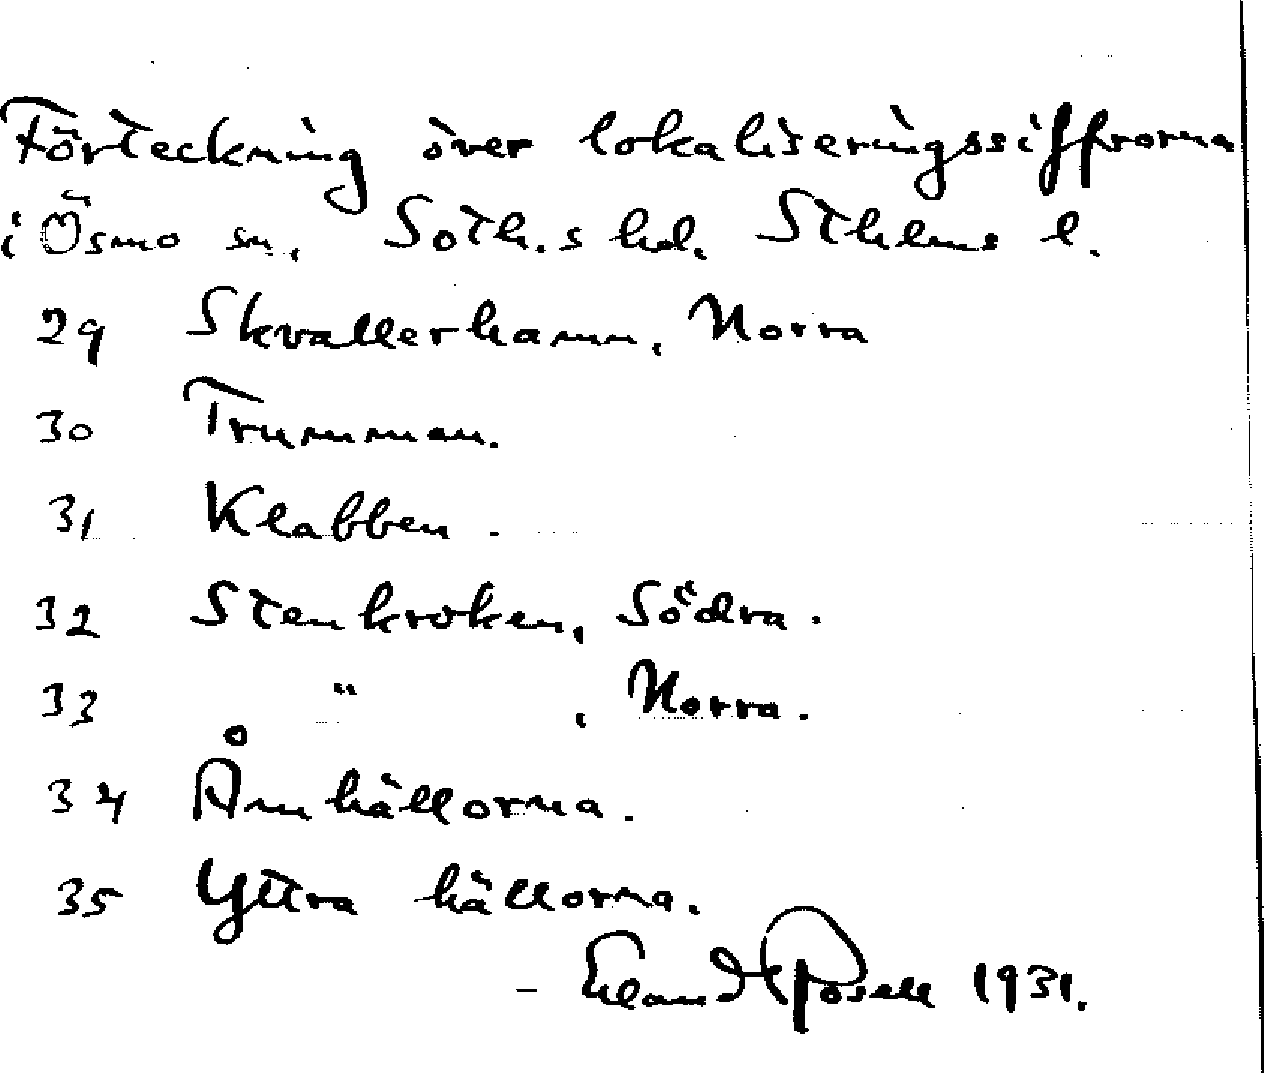 Förteckning över lokaliseringssiffrorna
i Ösmo sn, Soth.s hd. Sthlms l.
29 Skvallerhamn, Norra
30 Trumman.
31 Klabben.
32 Stenkroken, Södra.
33 " , Norra.
34 Åmhällorna.
35 Yttra hällorna.
- Erland Rosell 1931.